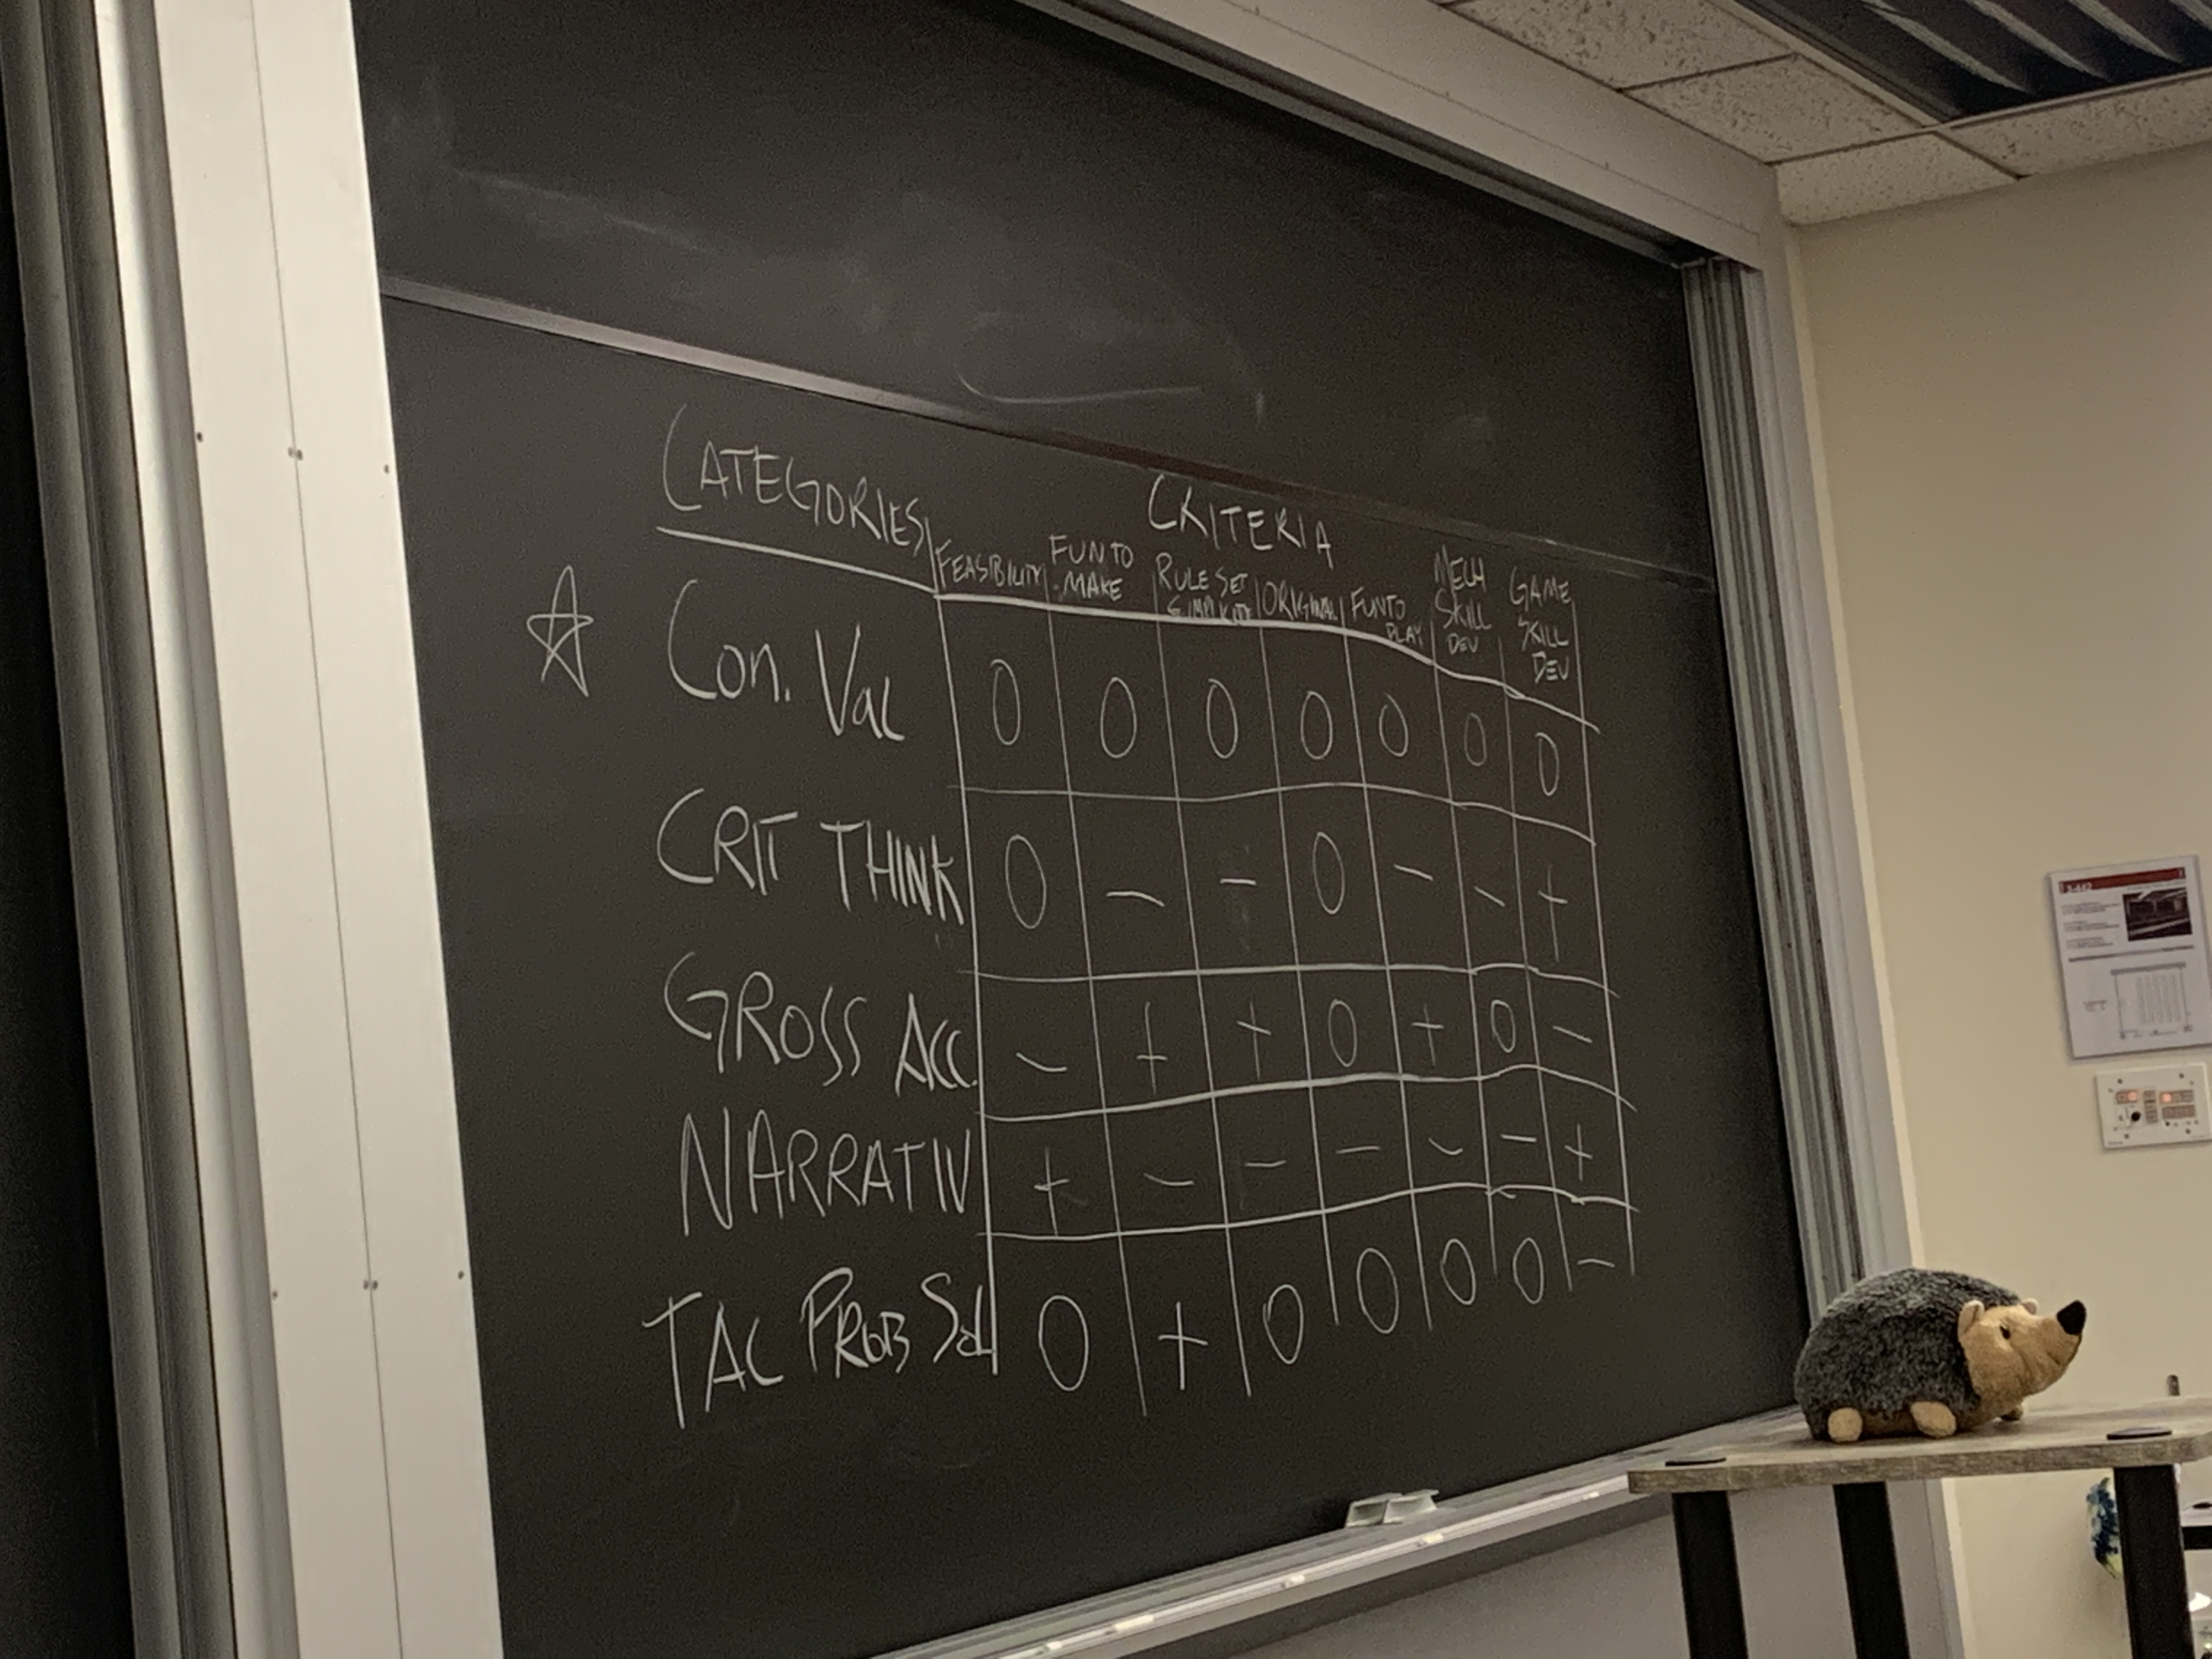 CATEGORIES CRITERIA
FEASIBILITY FUN TO MAKE RULE SET SIMPLICITY ORIGINAL FUN TO PLAY MECH SKILL DEV GAME SKILL DEV
☆ Con. Val 0 0 0 0 0 0 0
CRIT THINK 0 - - 0 - - +
GROSS ACC. - + + 0 + 0 -
NARRATIV + - - - - - +
TAC PROB Sol 0 + 0 0 0 0 -